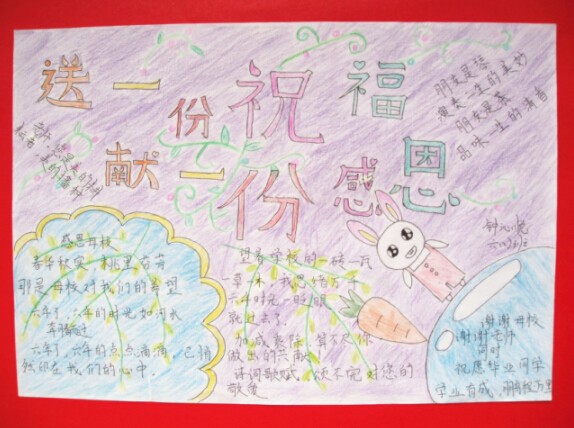 送一份祝福
献一份感恩
朋友是琴
演奏一生的美妙
朋友是茶
品味一生的清香
感恩母校
春华秋实，桃李芬芳
那是母校对我们的希望
六年了，六年的时光如河水
奔腾而过
六年了，六年的点点滴滴，已悄
然织在我们的心中。
望着学校的一砖一瓦
一草一木，我思绪万千
六年时光一眨眼
就过去了。
加减乘除，算不尽你
做出的贡献
诗词歌赋，颂不完对您的
敬爱
谢谢母校
谢谢老师
同时
祝愿毕业同学
学业有成，鹏程万里